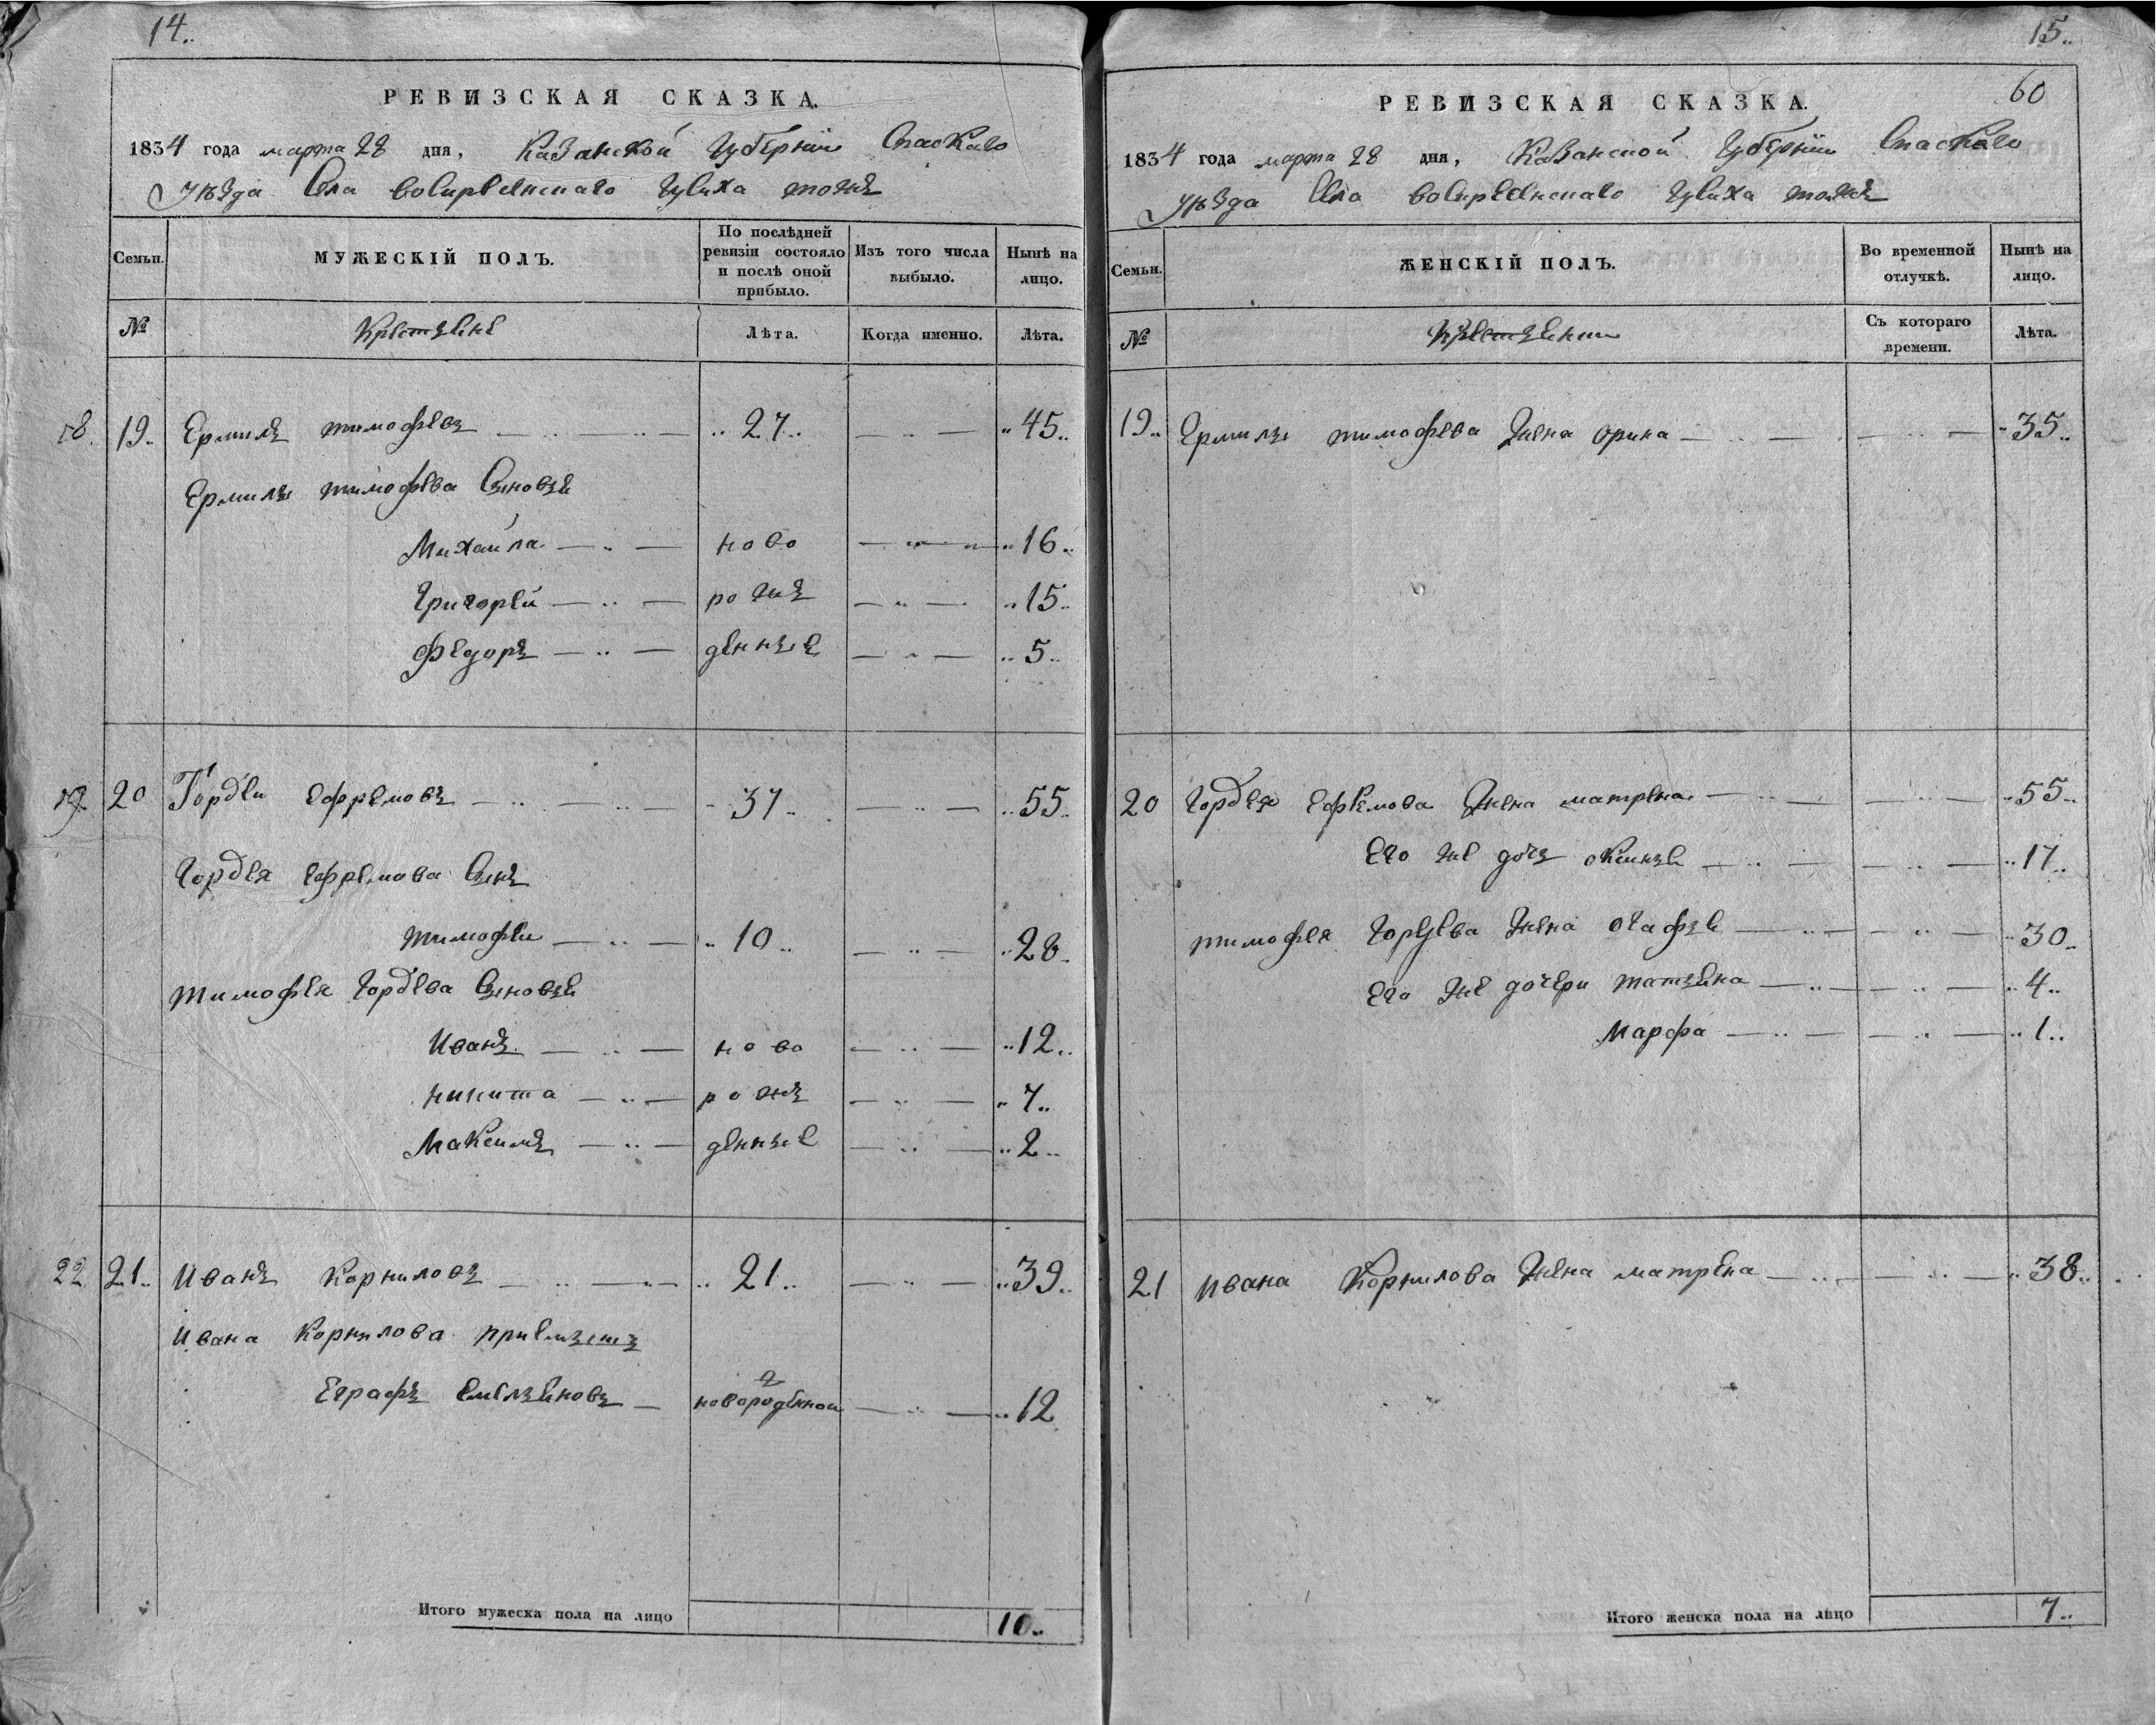 14..
РЕВИЗСКАЯ СКАЗКА.
1834 года марта 28 дня, Казанской Губернии Спаскаго
Уѣзда Села Воскресенскаго Гусиха тожъ
Семьи.
МУЖЕСКІЙ ПОЛЪ.
По послѣдней ревизіи состояло и послѣ оной прибыло.
Изъ того числа выбыло.
Нынѣ на лицо.
№
Крестьяне
Лѣта.
Когда именно.
Лѣта.
18. 19. Ермилъ тимофеевъ 27.. 45..
Ермилы тимофева Сыновья
Михаила ново 16..
Григорей рожъ 15..
Федоръденныя 5..
19. 20 Гордеи ефремовъ 37.. 55..
Гордея ефремова Сынъ
тимофеи 10.. 28..
тимофея Гордева Сыновьи
Иванъ ново 12..
никита рожъ 7..
Максимъ денные 2..
22 21.. Иванъ Корниловъ 21.. 39..
Ивана Корнилова приемышъ
Еграфъ емельяновъ новороденнои 12
Итого мужеска пола на лицо 10..
15..
60
РЕВИЗСКАЯ СКАЗКА.
1834 года марта 28 дня, Казанской Губернии Спаскаго
Уѣзда Села Воскресенскаго Гусиха тожъ
Семьи.
ЖЕНСКІЙ ПОЛЪ.
Во временной отлучкѣ.
Нынѣ на лицо.
№
Крестьянки
Съ котораго времени.
Лѣта.
19.. Ермилы тимофева жена орина 35..
20 Гордея Ефремова жена матрена 55..
Его же дочь оксинья 17..
тимофея Гордева жена огафья 30..
Его же дочери татьяна 4..
Марфа 1..
21 Ивана Корнилова жена матрена 38..
Итого женска пола на лицо 7..